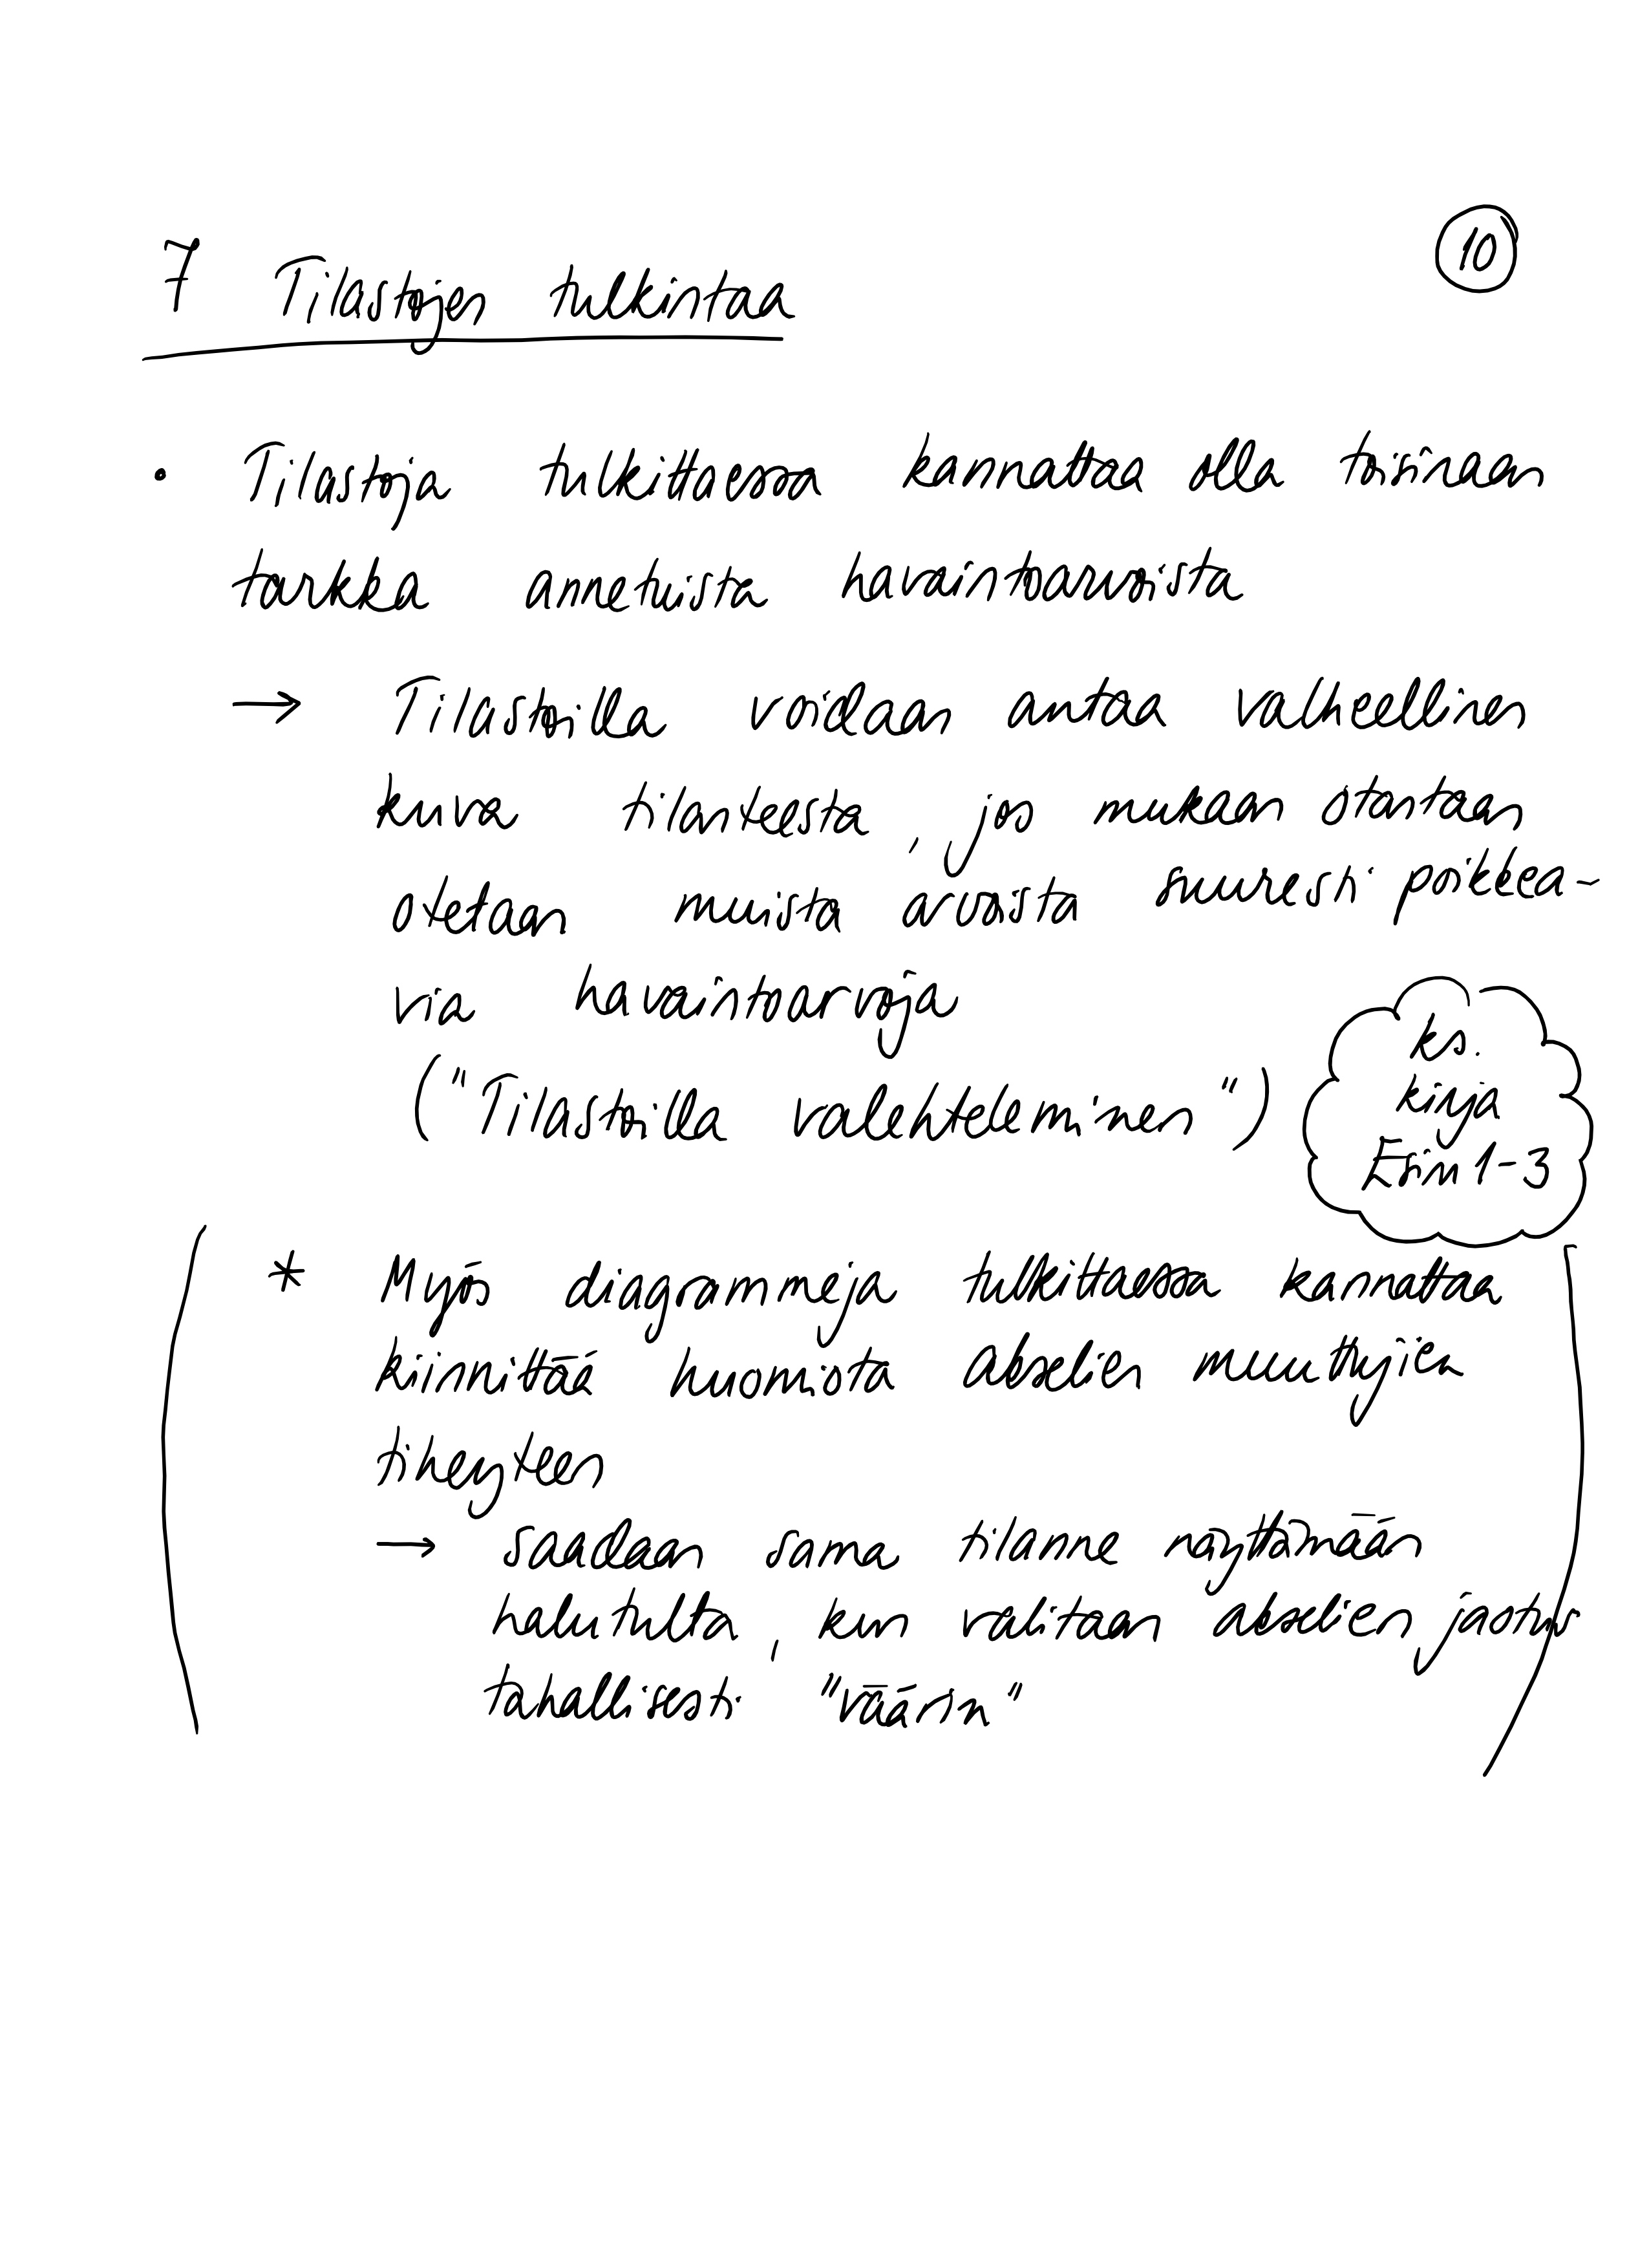 10
7 Tilastojen tulkintaa
• Tilastoja tulkittaessa kannattaa olla toisinaan
tarkka annetuista havaintoarvoista
→ Tilastoilla voidaan antaa valheellinen
kuva tilanteesta, jos mukaan otantaan
otetaan muista arvoista suuresti poikkea-
via havaintoarvoja
("Tilastoilla valehteleminen")
ks.
kirja
Esim 1-3
* Myös diagrammeja tulkittaessa kannattaa
kiinnittää huomiota akselien muuttujien
tiheyteen
→ saadaan sama tilanne näyttämään
halutulta, kun valitaan akselien jaotus
tahallisesti "väärin"